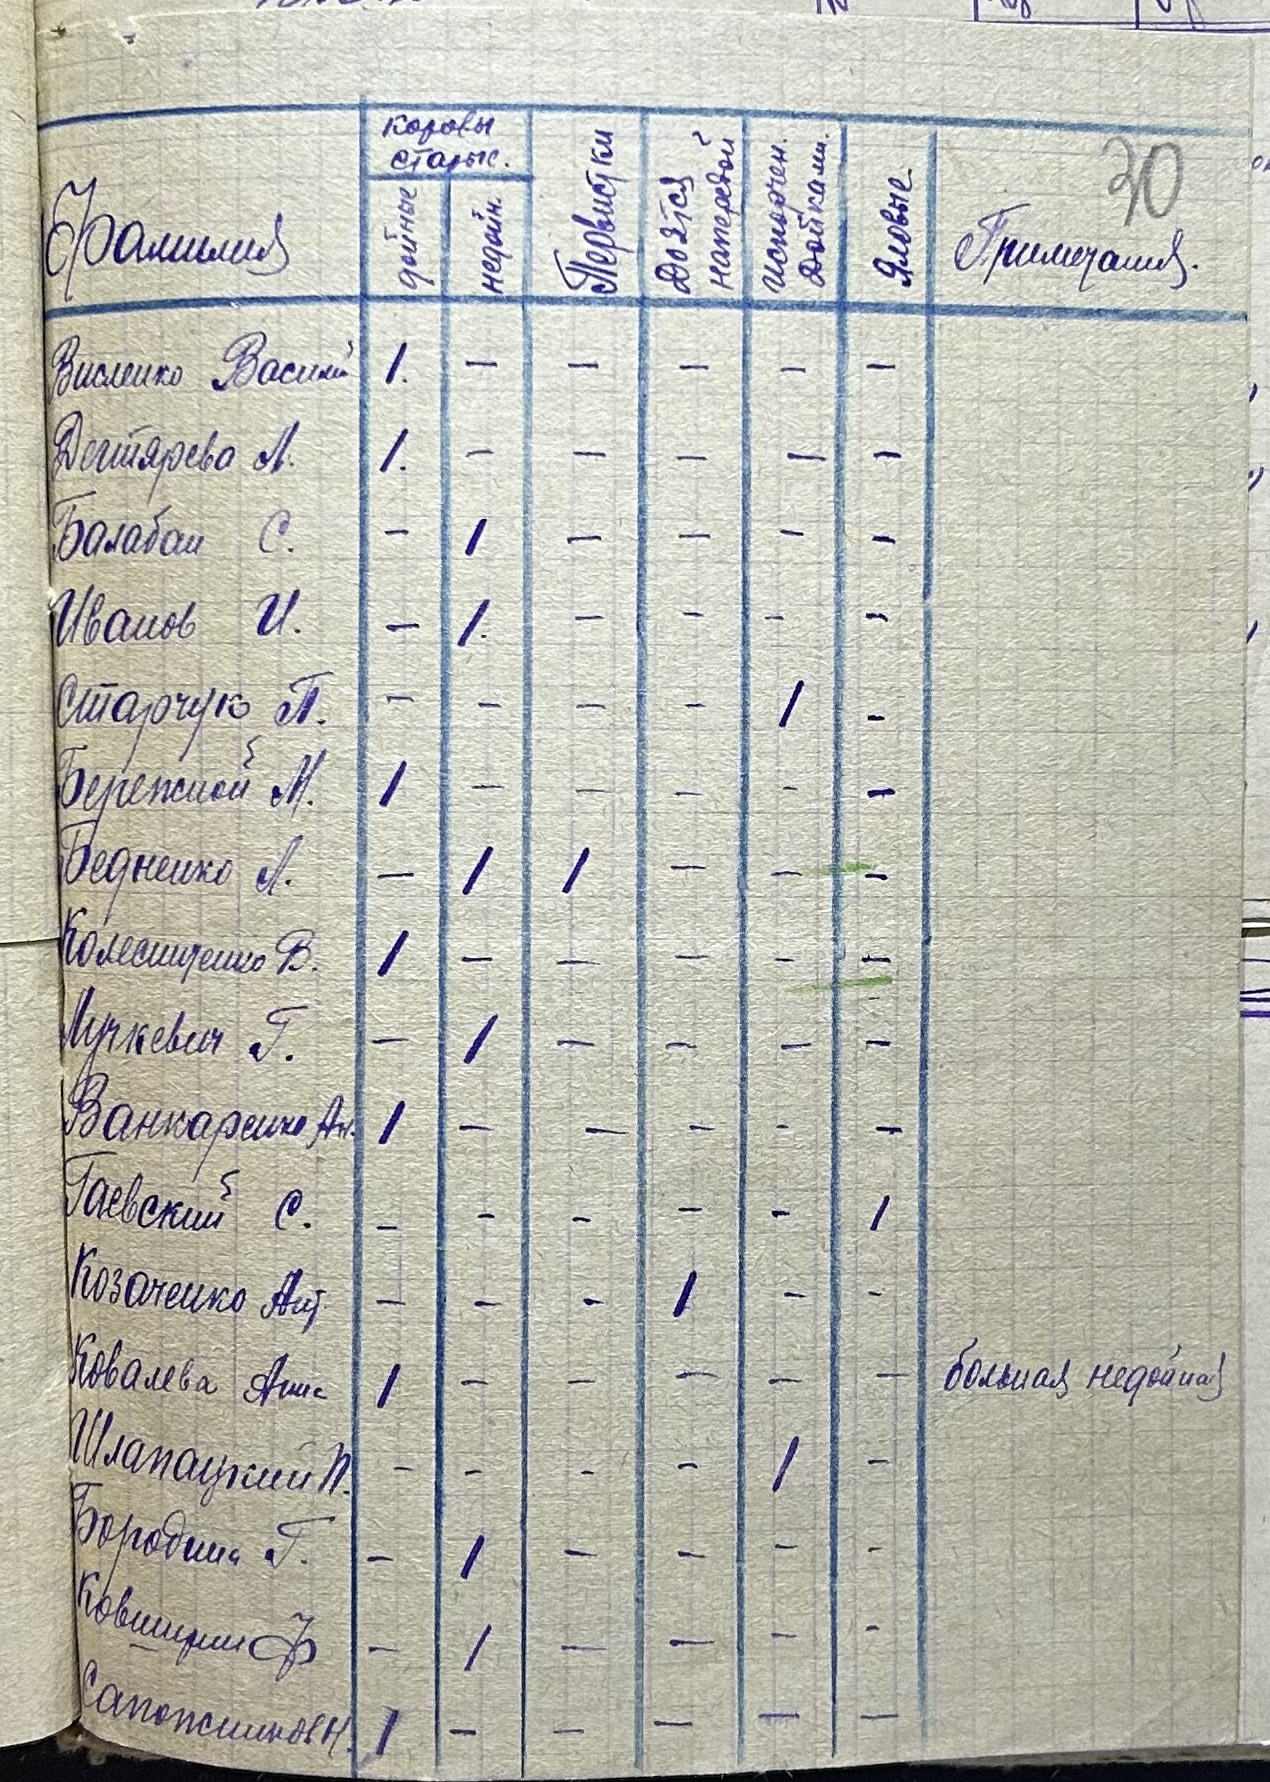 30
Фамилия коровы старые. дойные недойн. Первистки Доятся наперебой испорчен. дойками. Яловые Примечания.
Висленко Василий 1. — — — — —
Дегтярева А. 1. — — — — —
Балабан С. — 1 — — — —
Иванов И. — 1. — — — —
Старчук П. — — — — 1 —
Бережной М. 1 — — — — —
Бедненко А. — 1 1 — — —
Колесниченко В. 1 — — — — —
Лучкевич Г. — 1 — — — —
Ванкаренко Ан. 1 — — — — —
Гаевский С. — — — — — 1
Козаченко Ант — — — 1 — —
Ковалева Анис 1 — — — — — больная недойная
Шлапацкий П. — — — — 1 —
Бородина Г. — 1 — — — —
Ковширин Ф — 1 — — — —
Сапожников Н. 1 — — — — —